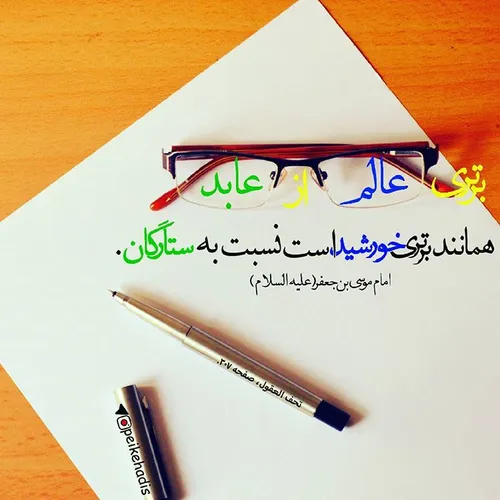 برتری عالم از عابد
همانند برتری خورشید است نسبت به ستارگان.
امام موسی بن جعفر (علیه السلام)
تحف العقول، صفحه ۲۰۷.
@peikehadis